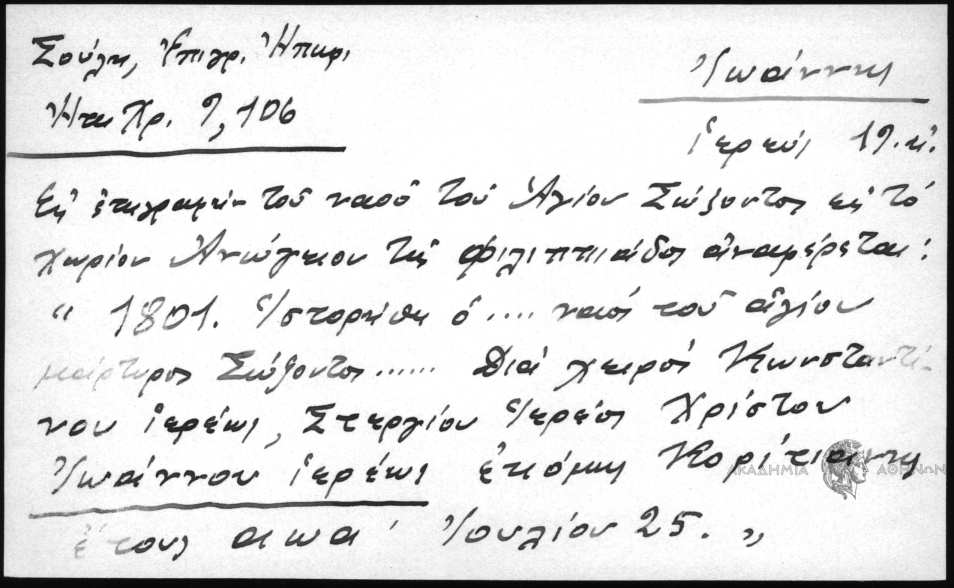 Σούλη, Ἐπιγρ. Ἠπειρ.
Ἠπ. Χρ. 9, 106
Ἰωάννης
ἱερεύς 19.αἰ.
Εἰς ἐπιγραφήν τοῦ ναοῦ τοῦ Ἁγίου Σώζοντος εἰς τό
χωρίον Ἀνώγειον τῆς Φιλιππιάδος ἀναφέρεται:
“ 1801. Ἱστορήθη ὁ .... ναός τοῦ ἁγίου
μάρτυρος Σώζοντος...... Διά χειρός Κωνσταντί-
νου ἱερέως, Στεργίου Ἱερέος Χρίστου
Ἰωάννου ἱερέως ἐκ
ΑΚΑΔΗΜΙΑ ΑΘΗΝΩΝ
ἔτους αωα΄ Ἰουλίου 25. „